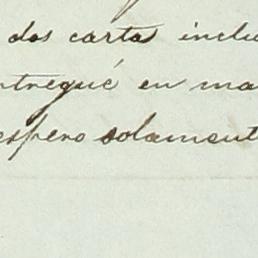 dos carta inclu
ntregué en ma
espero solament